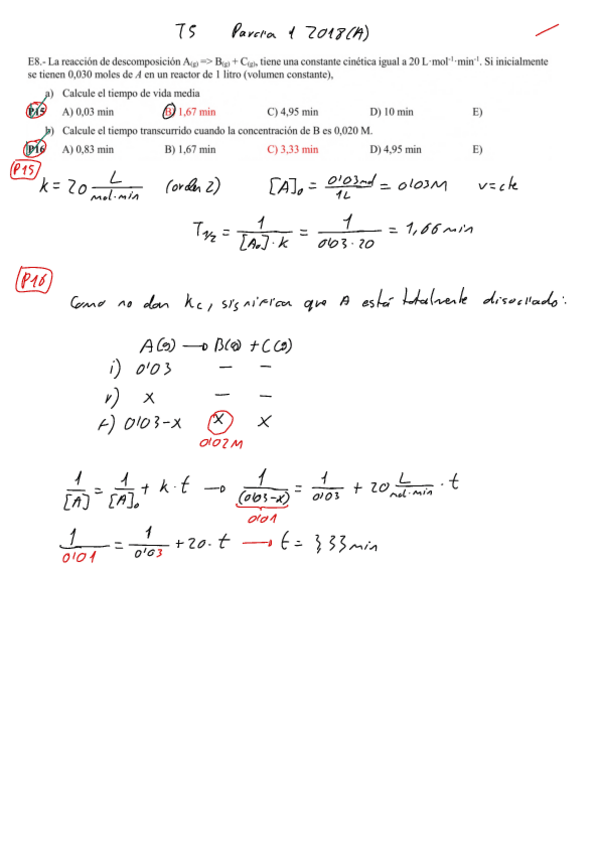 T5 Parcia 1 2018(A)
E8.- La reacción de descomposición A(g) => B(g) + C(g), tiene una constante cinética igual a 20 L·mol⁻¹·min⁻¹. Si inicialmente
se tienen 0,030 moles de A en un reactor de 1 litro (volumen constante),
a) Calcule el tiempo de vida media
P15 A) 0,03 min B) 1,67 min C) 4,95 min D) 10 min E)
b) Calcule el tiempo transcurrido cuando la concentración de B es 0,020 M.
P16 A) 0,83 min B) 1,67 min C) 3,33 min D) 4,95 min E)
P15)
k = 20 L/mol·min (orden 2) [A]₀ = 0'03mol/1L = 0'03M v=cte
T½ = 1/[A₀]·k = 1/0'03·20 = 1,66 min
P16)
Como no dan Kc, significan que A está totalmente disociado:
A(g) → B(g) + C(g)
i) 0'03 — —
r) x — —
f) 0'03-x x x
0'02M
1/[A] = 1/[A]₀ + k·t → 1/(0'03-x) = 1/0'03 + 20 L/mol·min · t
0'01
1/0'01 = 1/0'03 + 20·t → t = 3,33 min